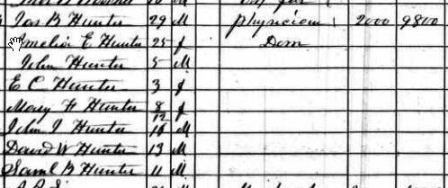 Jas B Hunter 29 M Physician 2000 9800
Amelia E Hunter 25 f Dom
John Hunter 5 M
E C Hunter 3 f
Mary F Hunter 8/12 f
John J Hunter 18 M
David W Hunter 13 M
Saml B Hunter 11 M